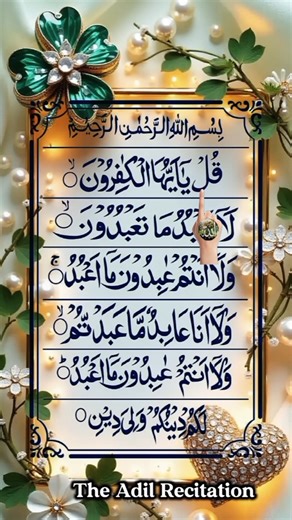 بِسْمِ اللهِ الرَّحْمٰنِ الرَّحِيْمِ
قُلْ يٰۤاَيُّهَا الْكٰفِرُوْنَ ۙ
لَاۤ اَعْبُدُ مَا تَعْبُدُوْنَ ۙ
وَلَاۤ اَنْتُمْ عٰبِدُوْنَ مَاۤ اَعْبُدُ ۚ
وَلَاۤ اَنَا عَابِدٌ مَّا عَبَدْتُّمْ ۙ
وَلَاۤ اَنْتُمْ عٰبِدُوْنَ مَاۤ اَعْبُدُ ؕ
لَكُمْ دِيْنُكُمْ وَلِيَ دِيْنِ
The Adil Recitation